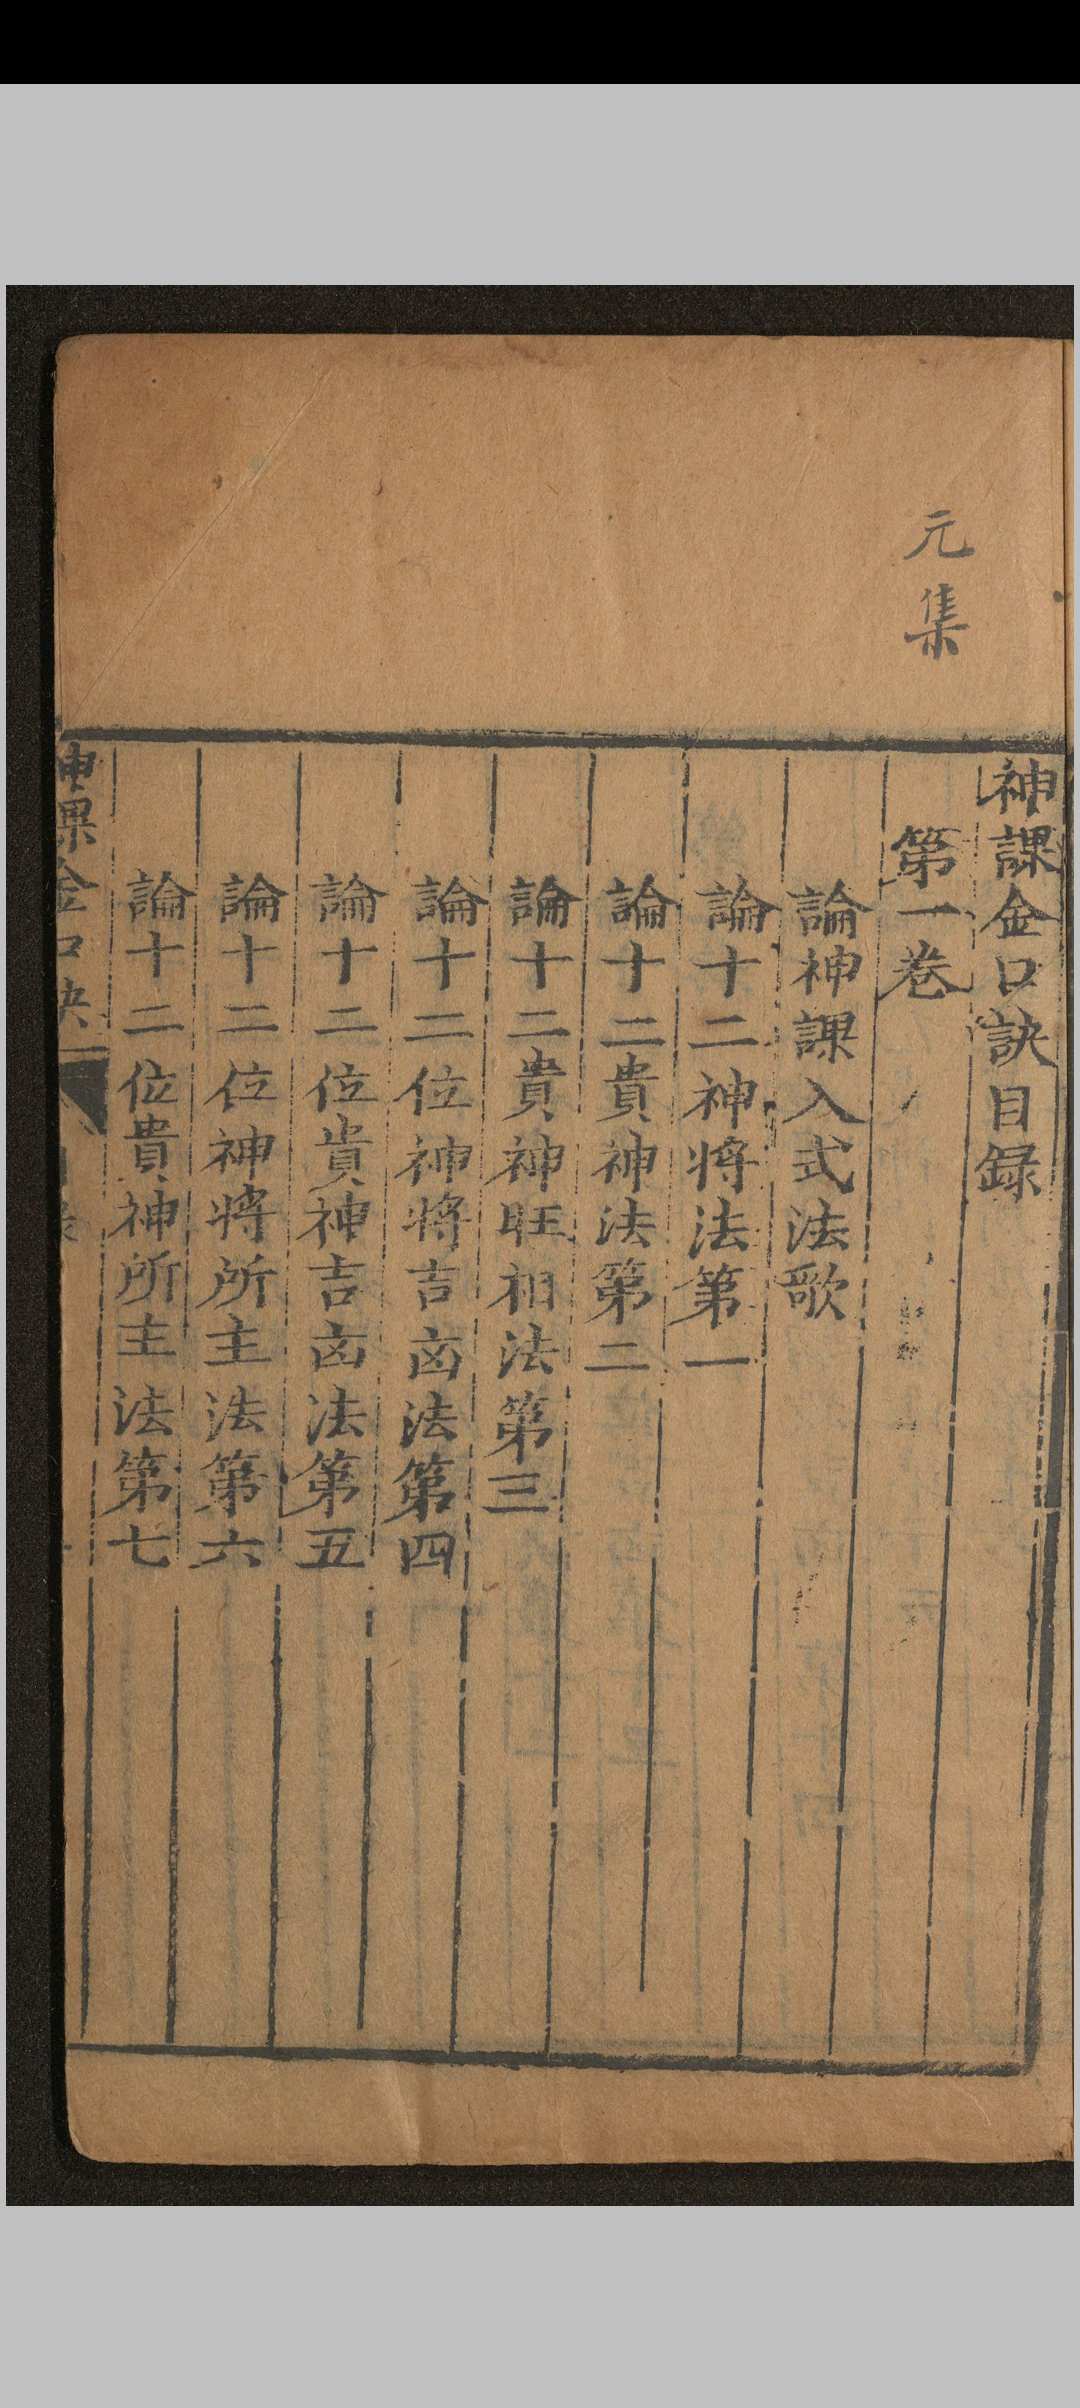 元集
神課金口訣目録
第一卷
論神課入式法歌
論十二神將法第一
論十二貴神法第二
論十二貴神旺相法第三
論十二位神將吉㐫法第四
論十二位貴神吉㐫法第五
論十二位神將所主法第六
論十二位貴神所主法第七
神課金口訣 目錄